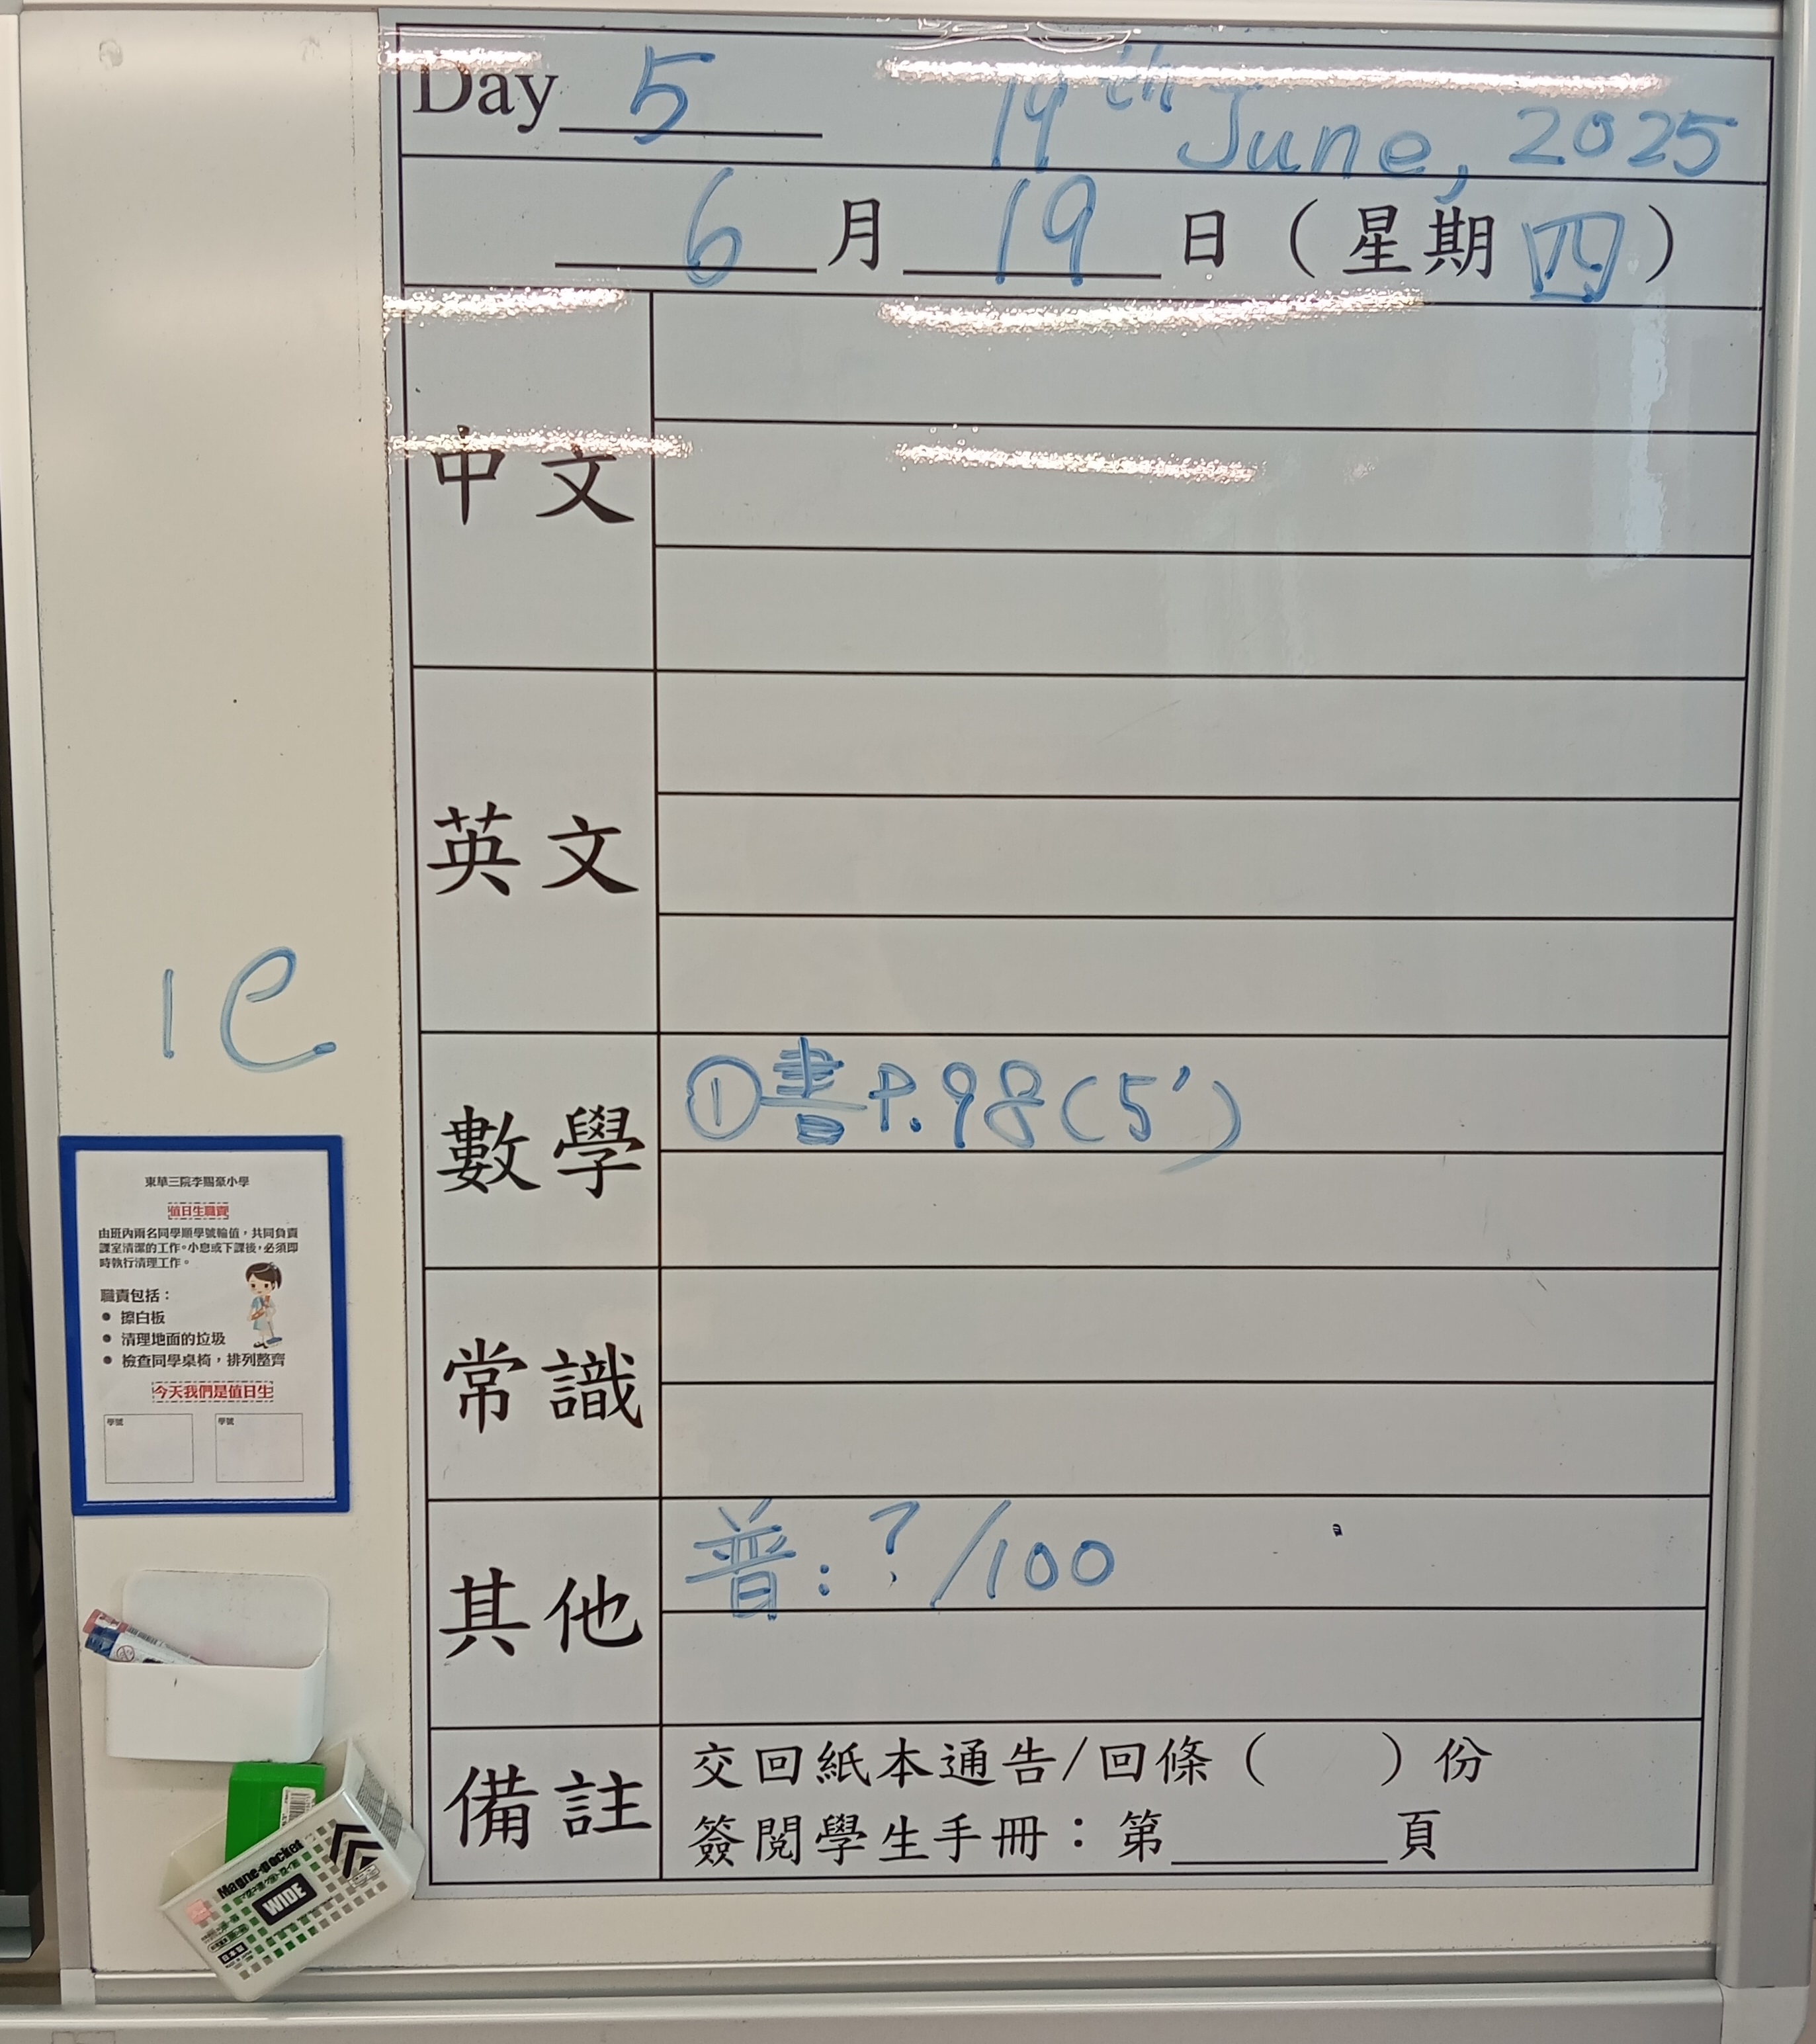 Day 5 19th June, 2025
6 月 19 日 ( 星期 四 )
中文
英文
1C
數學 ①書P.98(5')
常識
其他 普:?/100
備註 交回紙本通告/回條 ( ) 份
簽閱學生手冊：第 頁
東華三院李賜豪小學
值日生職責
由班內兩名同學順學號輪值，共同負責
課室清潔的工作。小息或下課後，必須即
時執行清理工作。
職責包括：
● 擦白板
● 清理地面的垃圾
● 檢查同學桌椅，排列整齊
今天我們是值日生
學號 學號
Magne-pocket
WIDE